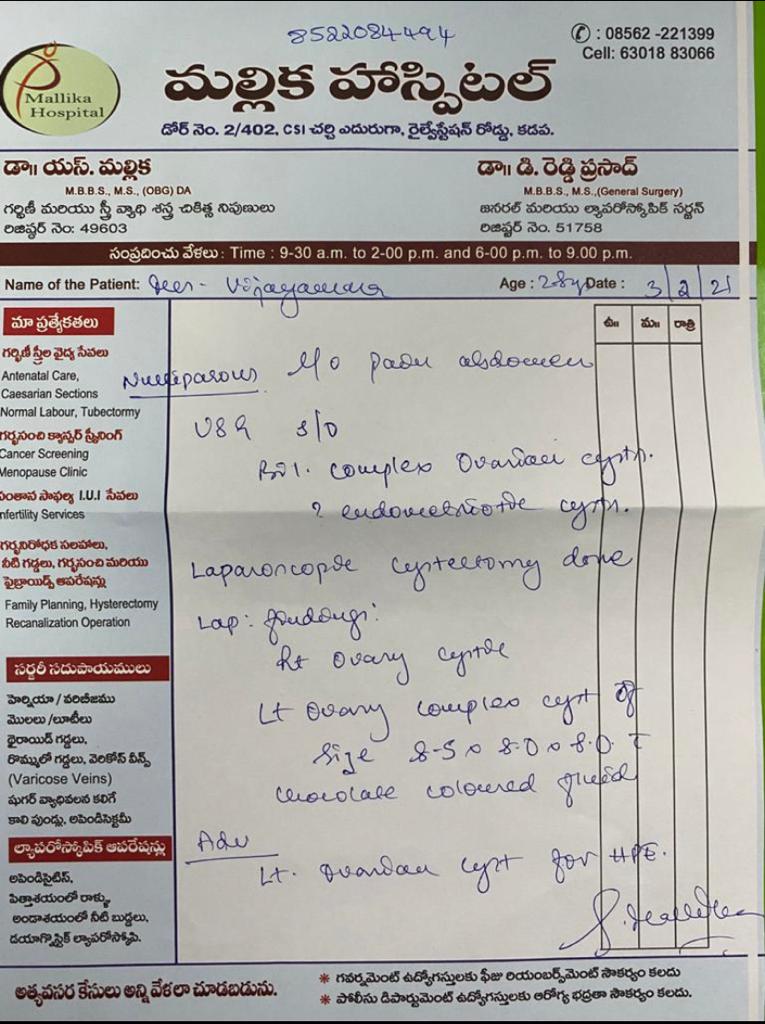 8522084494
✆ : 08562 -221399
Cell: 63018 83066
Mallika
Hospital
మల్లిక హాస్పిటల్
డోర్ నెం. 2/402, CSI చర్చి ఎదురుగా, రైల్వేస్టేషన్ రోడ్డు, కడప.
డా॥ యస్. మల్లిక
M.B.B.S., M.S., (OBG) DA
గర్భిణీ మరియు స్త్రీ వ్యాధి శస్త్ర చికిత్స నిపుణులు
రిజిష్టర్ నెం: 49603
డా॥ డి. రెడ్డి ప్రసాద్
M.B.B.S., M.S.,(General Surgery)
జనరల్ మరియు ల్యాపరోస్కోపిక్ సర్జన్
రిజిష్టర్ నెం. 51758
సంప్రదించు వేళలు : Time : 9-30 a.m. to 2-00 p.m. and 6-00 p.m. to 9.00 p.m.
Name of the Patient: Age : 28y Date : 3/2/21
ఉ॥ మ॥ రాత్రి
Nulliparous H/o pain abdomen
USG S/O
Bil. complex Ovarian cysts.
? endometriotic cysts.
Laparoscopic cystectomy done
Lap: findings:
Rt Ovary cystic
Lt Ovary complex cyst of
size 8.5 x 8.0 x 8.0. c̄
chocolate coloured fluid
Adv
Lt. ovarian cyst for HPE.
మా ప్రత్యేకతలు
గర్భిణీ స్త్రీల వైద్య సేవలు
Antenatal Care,
Caesarian Sections
Normal Labour, Tubectormy
గర్భసంచి క్యాన్సర్ స్క్రీనింగ్
Cancer Screening
Menopause Clinic
సంతాన సాఫల్య I.U.I సేవలు
nfertility Services
గర్భనిరోధక సలహాలు,
నీటి గడ్డలు, గర్భసంచి మరియు
ఫైబ్రాయిడ్స్ ఆపరేషన్లు
Family Planning, Hysterectomy
Recanalization Operation
సర్జరీ సదుపాయములు
హెర్నియా / వరిబీజము
మొలలు /లూటీలు
థైరాయిడ్ గడ్డలు,
రొమ్ములో గడ్డలు, వెరికోస్ వీన్స్
(Varicose Veins)
షుగర్ వ్యాధివలన కలిగే
కాలి పుండ్లు, అపెండిసెక్టమీ
ల్యాపరోస్కోపిక్ ఆపరేషన్లు
అపెండిసైటిస్,
పిత్తాశయంలో రాళ్ళు,
అండాశయంలో నీటి బుడ్డలు,
డయాగ్నొస్టిక్ ల్యాపరోస్కోపి.
అత్యవసర కేసులు అన్ని వేళలా చూడబడును.
* గవర్నమెంట్ ఉద్యోగస్తులకు ఫీజు రియంబర్స్‌మెంట్ సౌకర్యం కలదు
* పోలీసు డిపార్టుమెంట్ ఉద్యోగస్తులకు ఆరోగ్య భద్రతా సౌకర్యం కలదు.